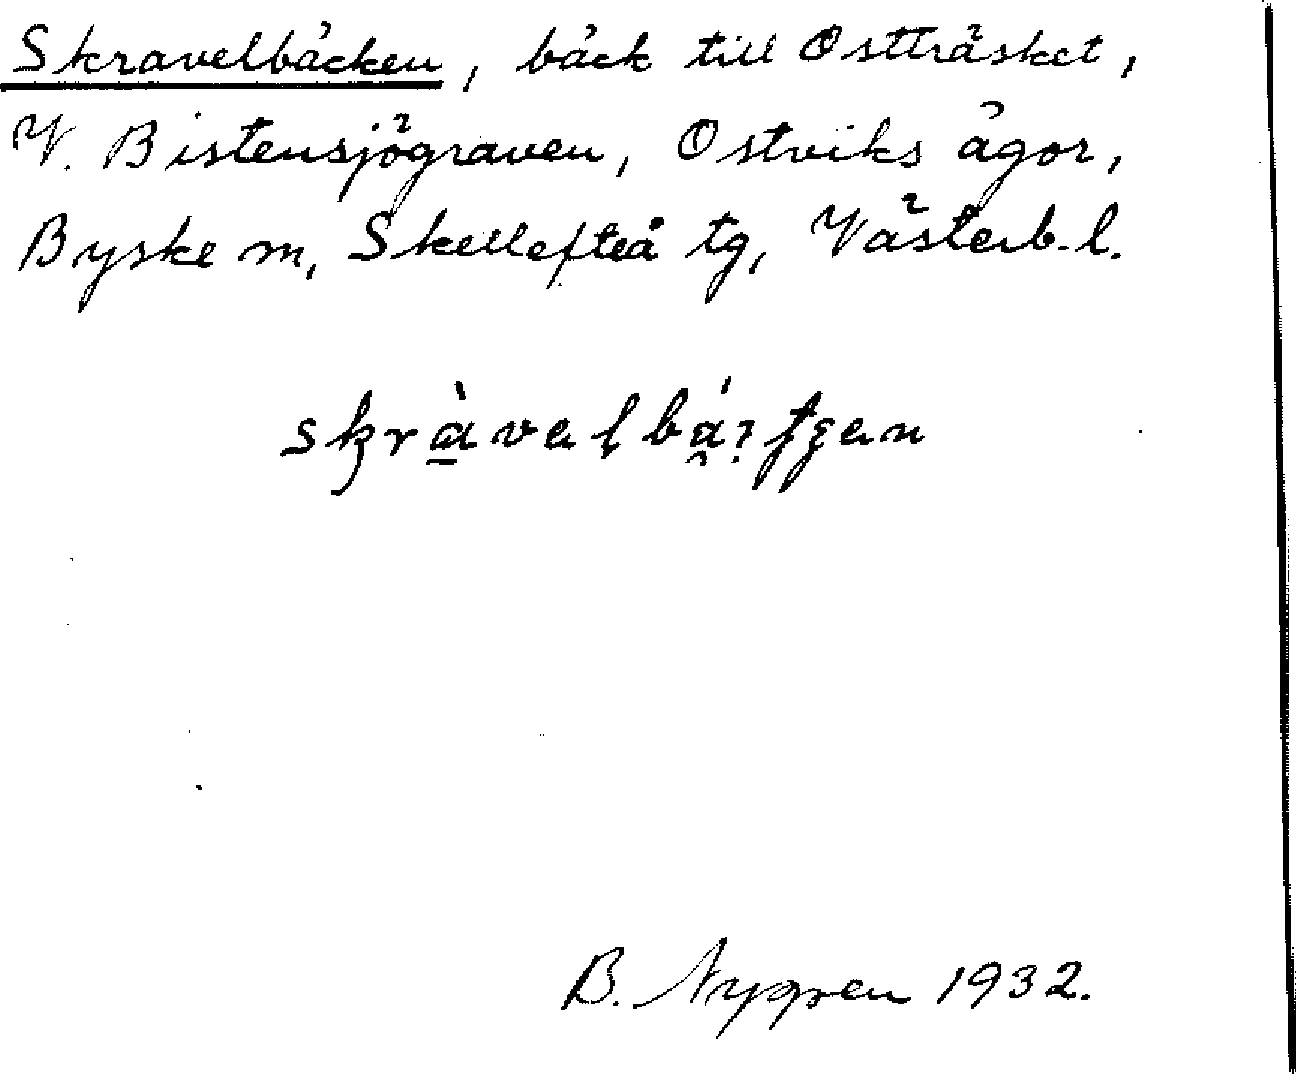 Skravelbäcken, bäck till Östträsket,
V. Bistensjögraven, Ostviks ägor,
Byske sn, Skellefteå tg, Västerb. l.
B. Nygren 1932.